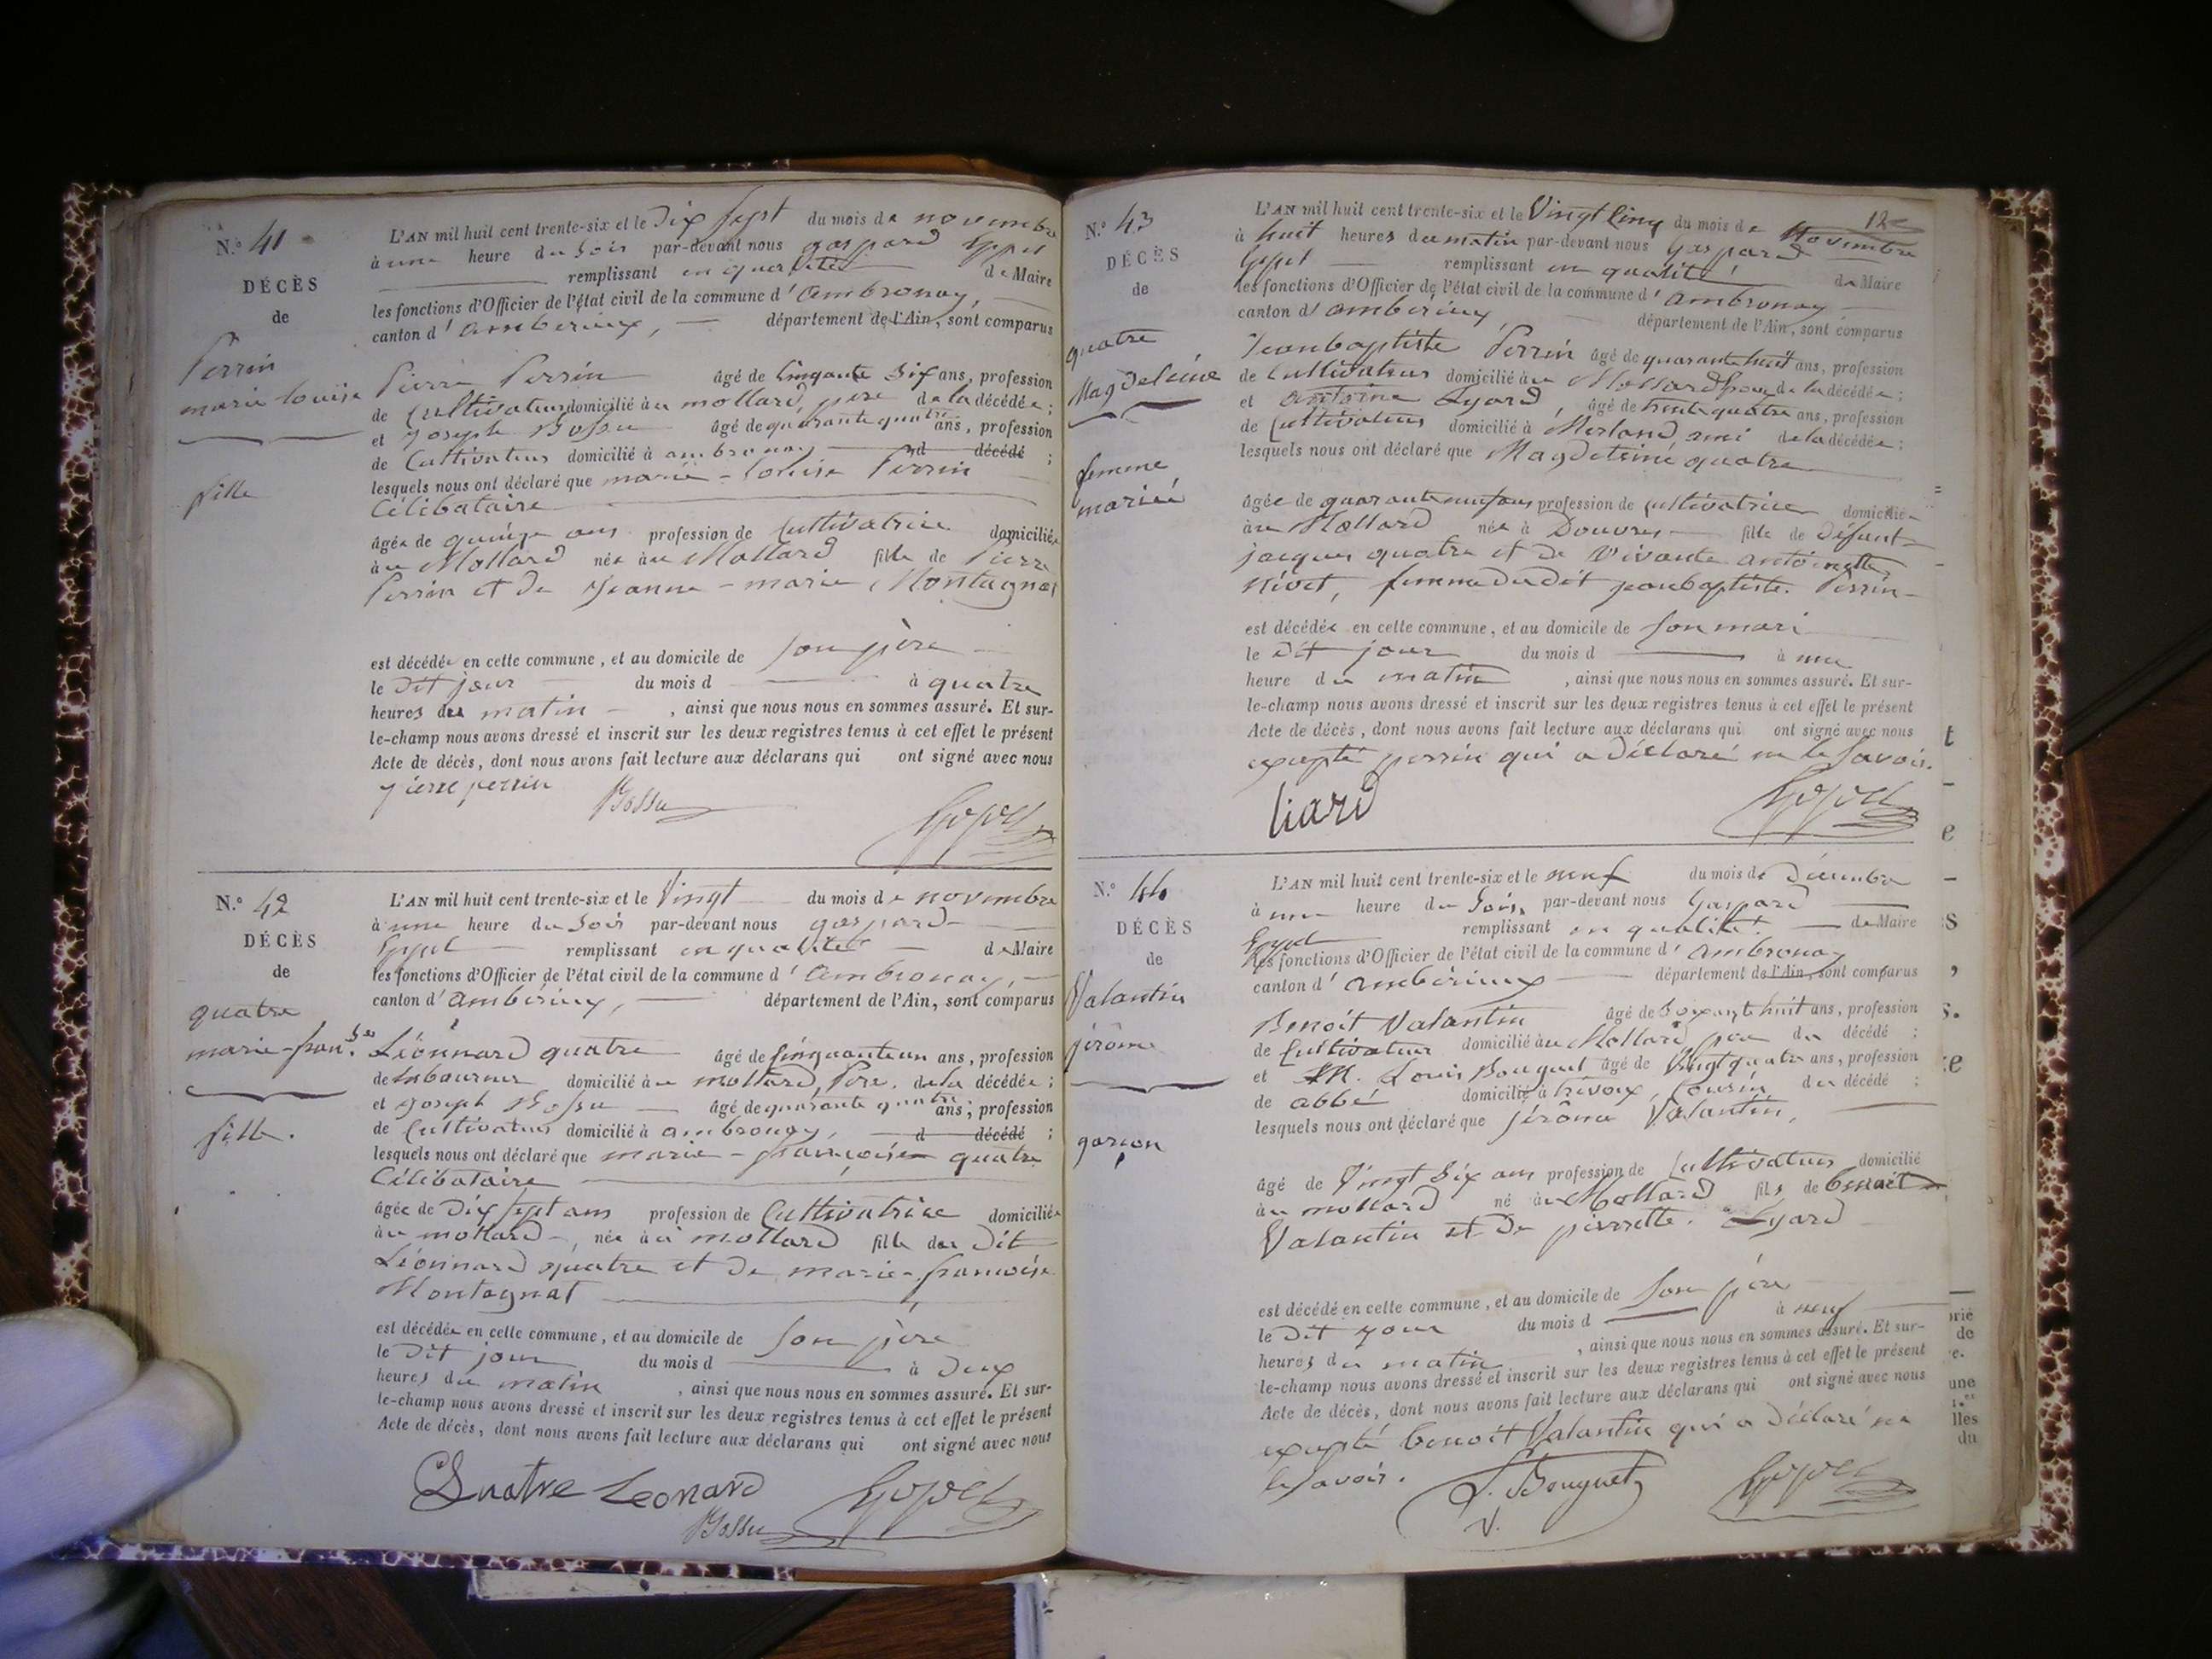 N.° 41
DÉCÈS
de
Perrin
marie louise
fille
L'AN mil huit cent trente-six et le Dix sept du mois de novembre
à une heure du Soir par-devant nous gaspard
remplissant en qualité de Maire
les fonctions d'Officier de l'état civil de la commune d'ambronay,
canton d'ambérieux, département de l'Ain, sont comparus
Pierre Perrin âgé de Cinquante Six ans, profession
de Cultivateur domicilié au mollard, père de la décédée;
et Joseph Bossu âgé de quarante quatre ans, profession
de Cultivateur domicilié à ambronay d décédé ;
lesquels nous ont déclaré que marie-louise Perrin
Célibataire
âgée de quinze ans profession de Cultivatrice domiciliée
au Mollard née au Mollard fille de Pierre
Perrin et de Jeanne-marie Montagnat
est décédée en cette commune, et au domicile de Son père
le Dit jour du mois d à quatre
heures du matin , ainsi que nous nous en sommes assuré. Et sur-
le-champ nous avons dressé et inscrit sur les deux registres tenus à cet effet le présent
Acte de décès, dont nous avons fait lecture aux déclarans qui ont signé avec nous
pierre perrin Bossu
N.° 42
DÉCÈS
de
quatre
marie-fran.ses
fille.
L'AN mil huit cent trente-six et le Vingt du mois de novembre
à une heure du Soir par-devant nous gaspard
remplissant en qualité de Maire
les fonctions d'Officier de l'état civil de la commune d'ambronay,
canton d'ambérieux, département de l'Ain, sont comparus
Léonnard quatre âgé de Cinquante un ans, profession
de Laboureur domicilié au mollard, Père, de la décédée;
et Joseph Bossu âgé de quarante quatre ans, profession
de Cultivateur domicilié à ambronay, d décédé ;
lesquels nous ont déclaré que marie-françoise quatre
Célibataire
âgée de Dix sept ans profession de Cultivatrice domiciliée
au mollard, née au mollard fille du Dit
Léonnard quatre et de marie-françoise
Montagnat
est décédée en cette commune, et au domicile de Son père
le Dit jour du mois d à Deux
heures du matin , ainsi que nous nous en sommes assuré. Et sur-
le-champ nous avons dressé et inscrit sur les deux registres tenus à cet effet le présent
Acte de décès, dont nous avons fait lecture aux déclarans qui ont signé avec nous
Quatre Leonard
Bossu
N.° 43
DÉCÈS
de
quatre
Magdeleine
femme
mariée
L'AN mil huit cent trente-six et le Vingt Cinq du mois de Novembre
à huit heures du matin par-devant nous Gaspard
remplissant en qualité de Maire
les fonctions d'Officier de l'état civil de la commune d'ambronay
canton d'ambérieux département de l'Ain, sont comparus
Jean baptiste Perrin âgé de quarante huit ans, profession
de Cultivateur domicilié au Mollard de la décédée;
et antoine Lyard, âgé de trente quatre ans, profession
de Cultivateur domicilié à Merland, ami de la décédée;
lesquels nous ont déclaré que Magdeleine quatre
âgée de quarante neuf ans profession de Cultivatrice domiciliée
au Mollard née à Douvres fille de Défunt
jacques quatre et de Vivante antoinette
Nivet, femme dudit jean baptiste. Perrin
est décédée en cette commune, et au domicile de Son mari
le Dit jour du mois d à une
heure du matin , ainsi que nous nous en sommes assuré. Et sur-
le-champ nous avons dressé et inscrit sur les deux registres tenus à cet effet le présent
Acte de décès, dont nous avons fait lecture aux déclarans qui ont signé avec nous
excepté perrin qui a déclaré ne le Savoir.
liard
N.° 44
DÉCÈS
de
Valantin
jérôme
garçon
L'AN mil huit cent trente-six et le neuf du mois de Décembre
à une heure du Soir, par-devant nous Gaspard
remplissant en qualité de Maire
les fonctions d'Officier de l'état civil de la commune d'ambronay
canton d'ambérieux département de l'Ain, sont comparus
Benoit Valantin âgé de Soixante huit ans, profession
de Cultivateur domicilié au Mollard père du décédé ;
et M. Louis Bouquet âgé de Vingt quatre ans, profession
de abbé domicilié à trévoux, Cousin du décédé ;
lesquels nous ont déclaré que jérôme Valantin,
âgé de Vingt Six ans profession de Cultivateur domicilié
au mollard né au Mollard fils de benoit
Valantin et de pierrette Lyard
est décédé en cette commune, et au domicile de Son père
le Dit jour du mois d à neuf
heures du matin , ainsi que nous nous en sommes assuré. Et sur-
le-champ nous avons dressé et inscrit sur les deux registres tenus à cet effet le présent
Acte de décès, dont nous avons fait lecture aux déclarans qui ont signé avec nous
excepté benoit Valantin qui a déclaré ne
le Savoir. L. Bouquet
V.